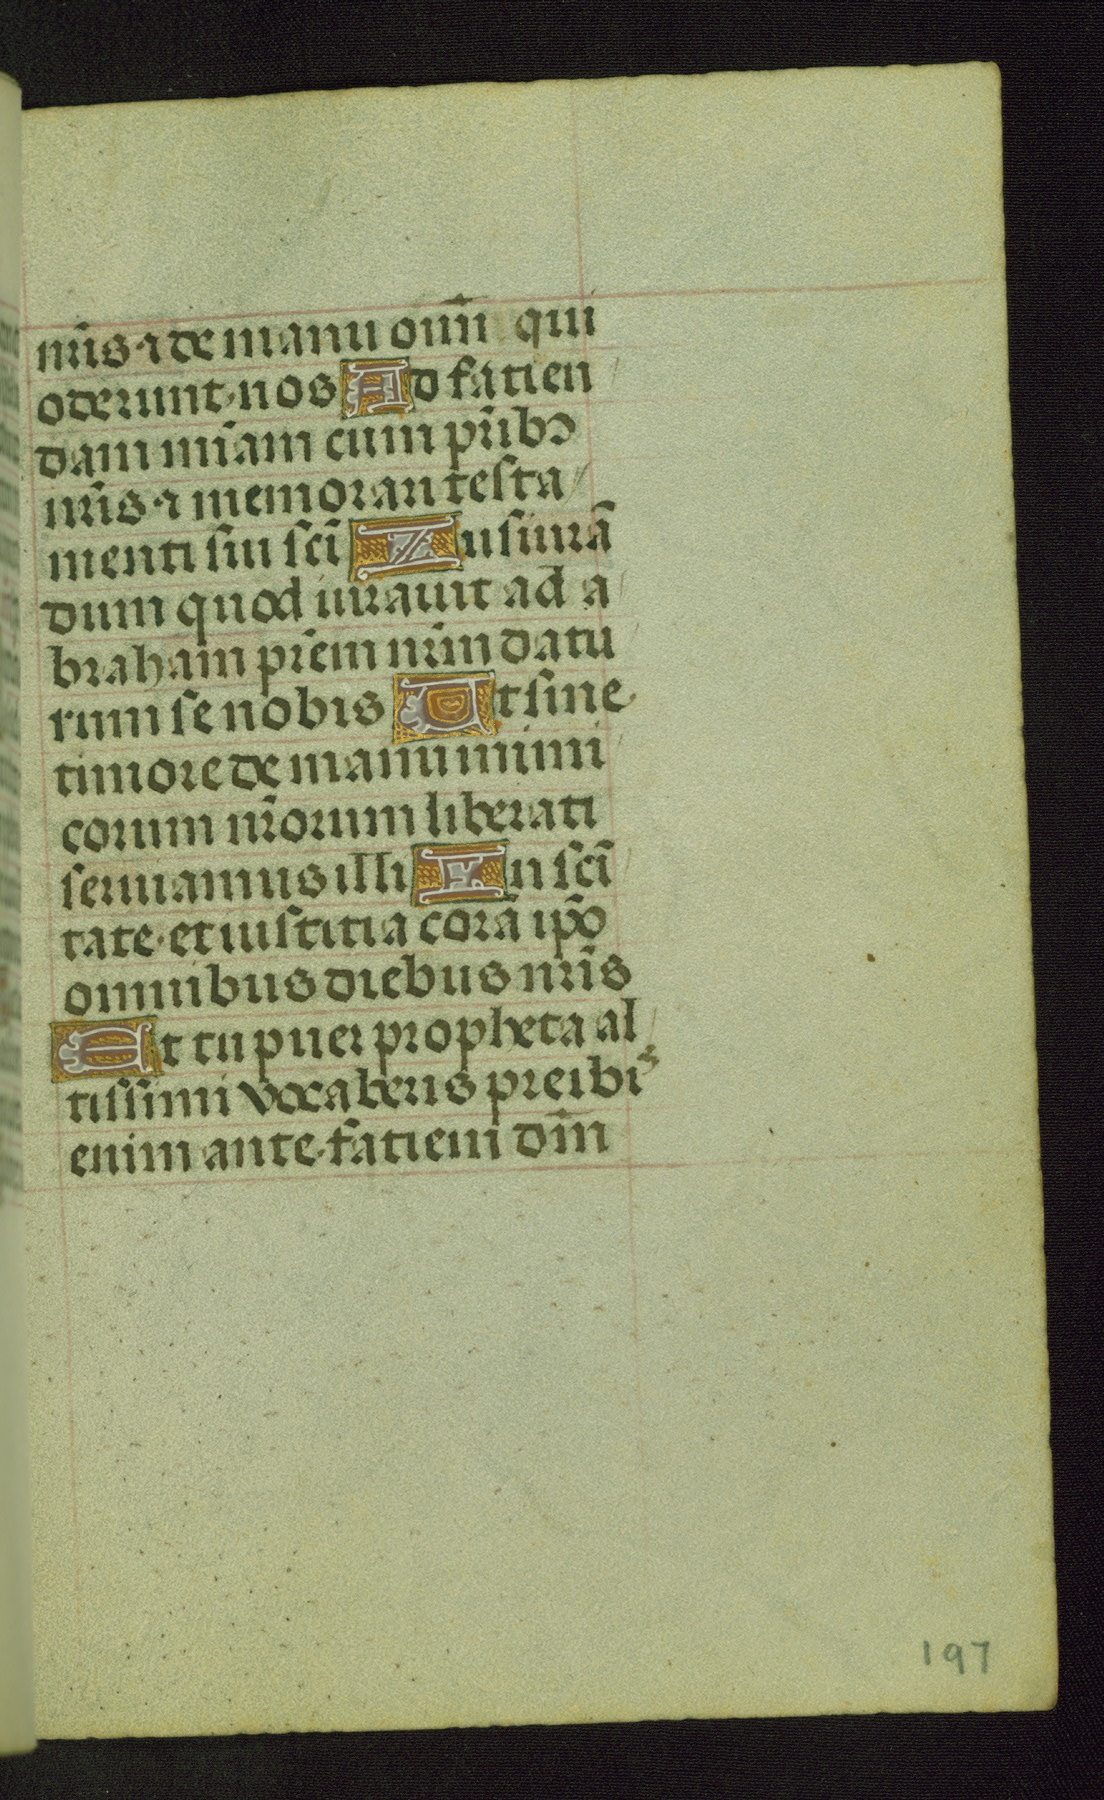 nr̄is ⁊ de manu om̄i qui
oderunt nos Ad fatien
dam mīam cum pr̄ibꝫ
nr̄is ⁊ memorari testa
menti sui sc̄i Iusiurā
dum quod iurauit ad a
braham pr̄em nr̄m datu
rum se nobis Ut sine
timore de manu inimi
corum nr̄orum liberati
seruiamus illi In sc̄i
tate et iustitia corā ip̄o
omnibus diebus nr̄is
Et tu puer propheta al
tissimi vocaberis preibis
enim ante fatiem dn̄i
197